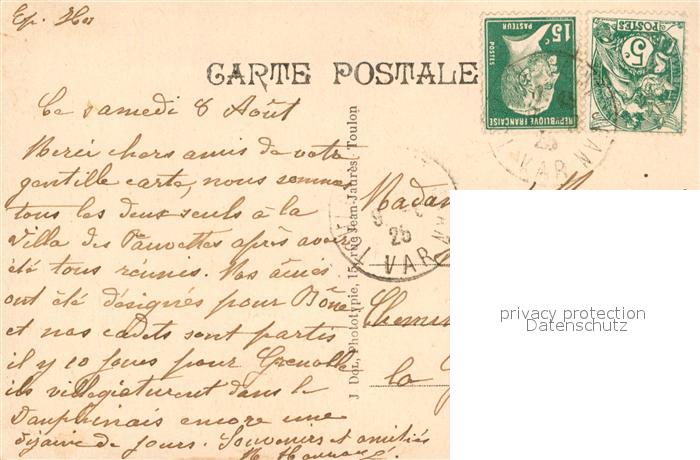 CARTE POSTALE
15c
PASTEUR
POSTES
REPUBLIQUE FRANÇAISE
POSTES
5c
Ce samedi 8 Août
Merci chers amis de votre
gentille carte, nous sommes
tous les deux seuls à la
Villa des Fauvettes après avoir
été tous réunis. Nos aînés
ont été désignés pour Bône
et nos cadets sont partis
il y 10 jours pour Grenoble
ils villegiaturent dans le
Dauphinais encore une
dizaine de jours. Souvenirs et amitiés
J. Dol, Phototypie, 15, rue Jean-Jaurès, Toulon
25
VAR
25
VAR
Madam
Chemin
la
privacy protection
Datenschutz